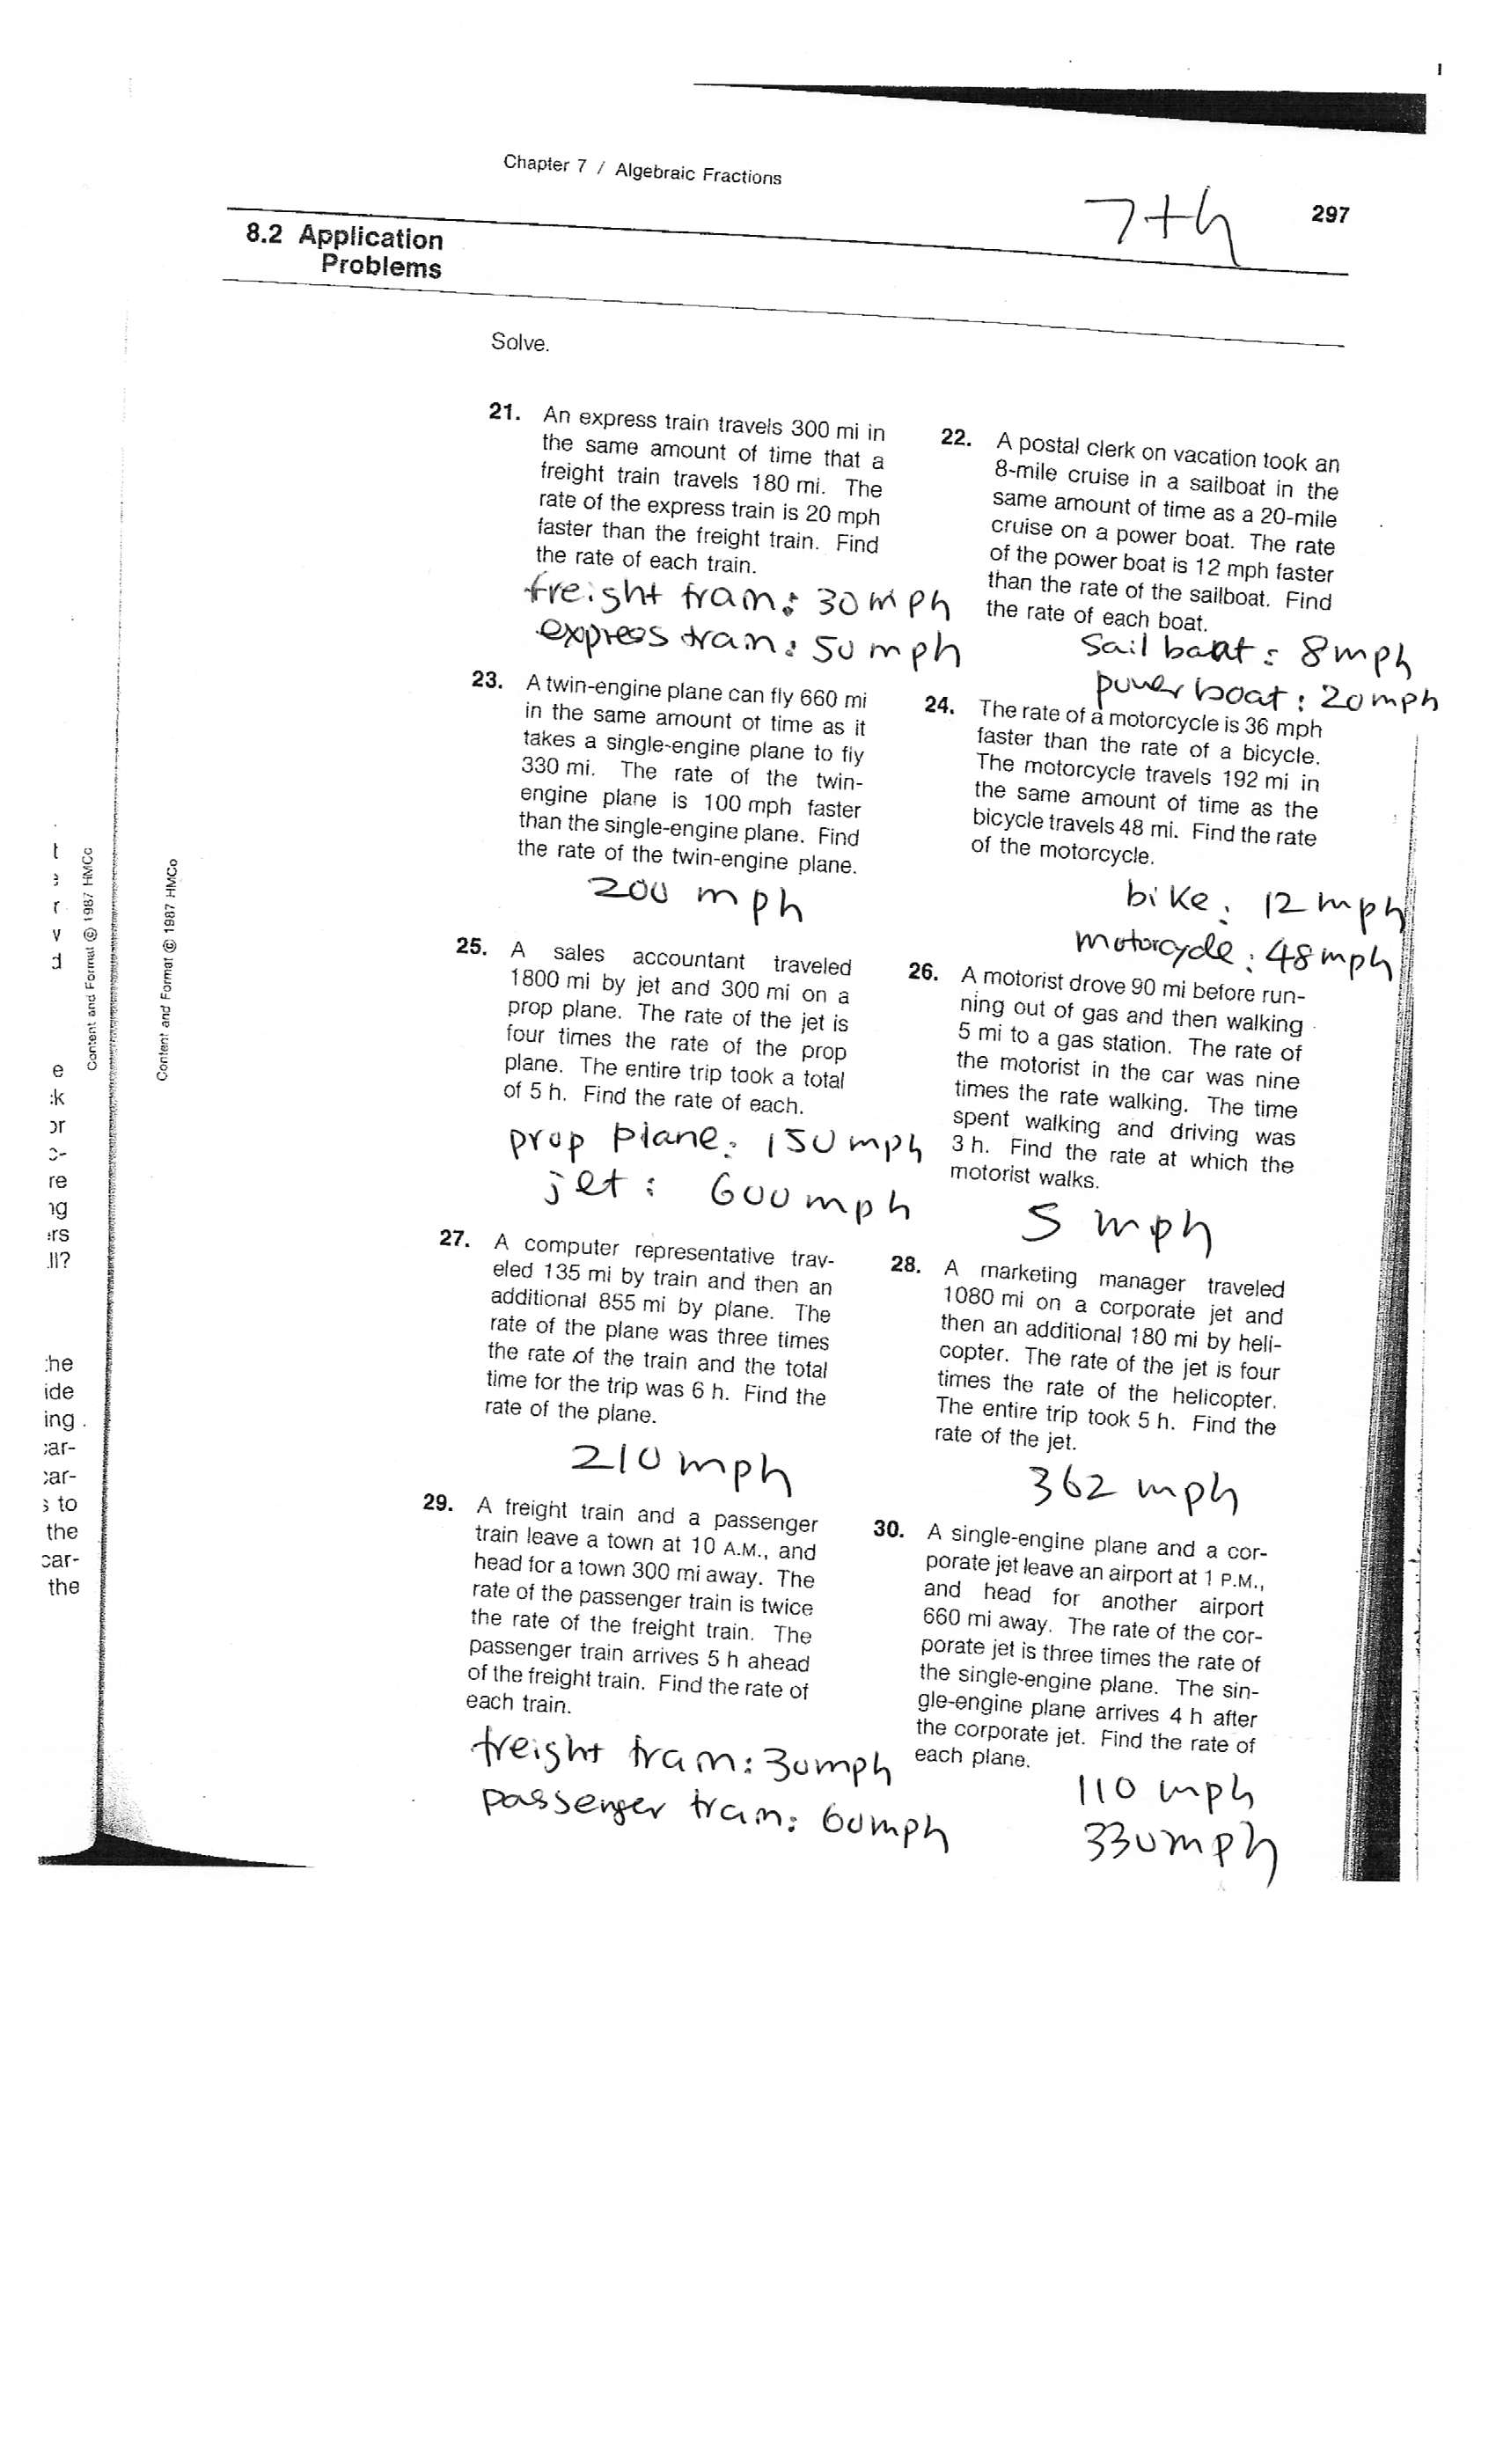 Chapter 7 / Algebraic Fractions
7th
297
8.2 Application
Problems
Solve.
21. An express train travels 300 mi in
the same amount of time that a
freight train travels 180 mi. The
rate of the express train is 20 mph
faster than the freight train. Find
the rate of each train.
freight train: 30 mph
express train: 50 mph
22. A postal clerk on vacation took an
8-mile cruise in a sailboat in the
same amount of time as a 20-mile
cruise on a power boat. The rate
of the power boat is 12 mph faster
than the rate of the sailboat. Find
the rate of each boat.
Sail boat: 8mph
power boat: 20mph
23. A twin-engine plane can fly 660 mi
in the same amount of time as it
takes a single-engine plane to fly
330 mi. The rate of the twin-
engine plane is 100 mph faster
than the single-engine plane. Find
the rate of the twin-engine plane.
200 mph
24. The rate of a motorcycle is 36 mph
faster than the rate of a bicycle.
The motorcycle travels 192 mi in
the same amount of time as the
bicycle travels 48 mi. Find the rate
of the motorcycle.
bike: 12 mph
motorcycle: 48mph
25. A sales accountant traveled
1800 mi by jet and 300 mi on a
prop plane. The rate of the jet is
four times the rate of the prop
plane. The entire trip took a total
of 5 h. Find the rate of each.
prop plane: 150mph
jet: 600mph
26. A motorist drove 90 mi before run-
ning out of gas and then walking
5 mi to a gas station. The rate of
the motorist in the car was nine
times the rate walking. The time
spent walking and driving was
3 h. Find the rate at which the
motorist walks.
5 mph
27. A computer representative trav-
eled 135 mi by train and then an
additional 855 mi by plane. The
rate of the plane was three times
the rate of the train and the total
time for the trip was 6 h. Find the
rate of the plane.
210 mph
28. A marketing manager traveled
1080 mi on a corporate jet and
then an additional 180 mi by heli-
copter. The rate of the jet is four
times the rate of the helicopter.
The entire trip took 5 h. Find the
rate of the jet.
362 mph
29. A freight train and a passenger
train leave a town at 10 A.M., and
head for a town 300 mi away. The
rate of the passenger train is twice
the rate of the freight train. The
passenger train arrives 5 h ahead
of the freight train. Find the rate of
each train.
freight train: 30mph
passenger train: 60mph
30. A single-engine plane and a cor-
porate jet leave an airport at 1 P.M.,
and head for another airport
660 mi away. The rate of the cor-
porate jet is three times the rate of
the single-engine plane. The sin-
gle-engine plane arrives 4 h after
the corporate jet. Find the rate of
each plane.
110 mph
330mph
Content and Format © 1987 HMCo
Content and Format © 1987 HMCo
t
r
v
d
e
:k
or
re
ng
ers
ll?
:he
ide
ing.
car-
car-
s to
the
car-
the